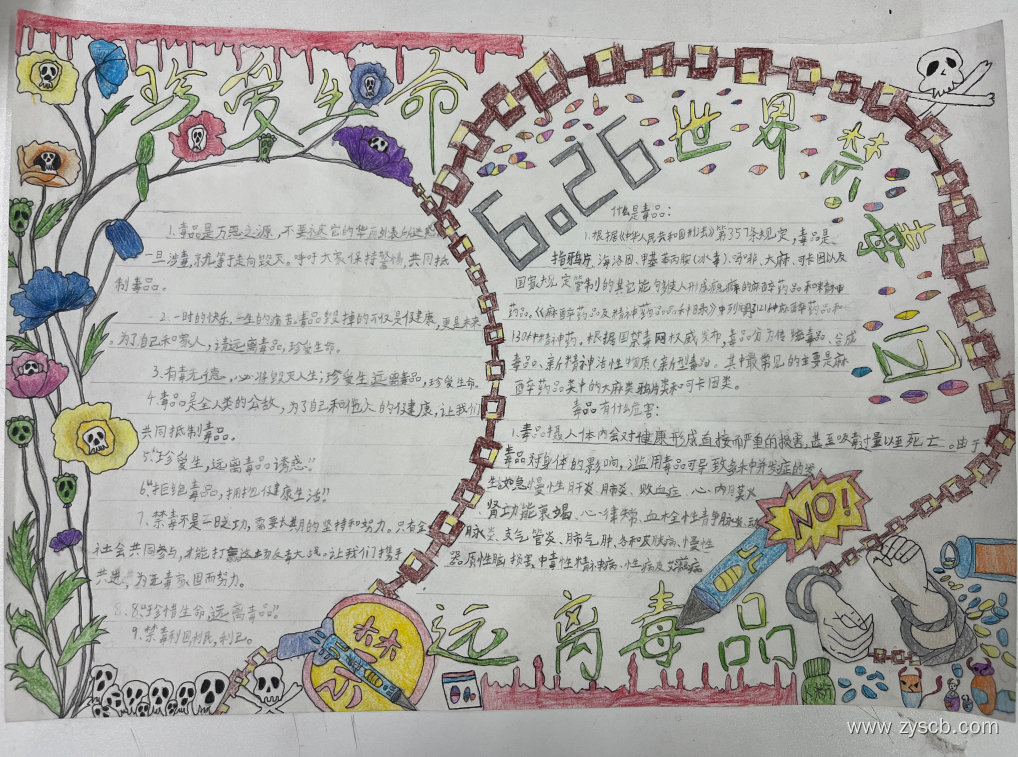 珍爱生命
6.26
世界禁毒日
1.毒品是万恶之源，不要被它的华丽外表
一旦涉毒，就等于走向毁灭。呼吁大家保持警惕，共同抵
制毒品。
2.一时的快乐，一生的痛苦。毒品毁掉的不仅是健康，更是未来
。为了自己和家人，请远离毒品，珍爱生命。
3.有毒无德，必将毁灭人生；珍爱生远离毒品，珍爱生命。
4.毒品是全人类的公敌，为了自己和他人的健康，让我们
共同抵制毒品。
5."珍爱生，远离毒品诱惑。"
6."拒绝毒品，拥抱健康生活"
7、禁毒不是一日之功，需要长期的坚持和努力。只有全
社会共同参与，才能打赢这场反毒大战。让我们携手
共进，为无毒家园而努力。
8、8."珍惜生命，远离毒品"
9、禁毒利国利民，利己。
什么是毒品：
1.根据《中华人民共和国刑法》第357条规定，毒品是
指鸦片、海洛因、甲基苯丙胺(冰毒)、吗啡、大麻、可卡因以及
国家规定管制的其它能够使人形成瘾癖的麻醉药品和精神
药品。《麻醉药品及精神药品品种目录》中列明了121种麻醉药品和
130种精神药。根据国禁毒网权威发布，毒品分为传统毒品、合成
毒品、新精神活性物质(新型毒品)。其中最常见的主要是麻
醉药品类中的大麻类鸦片类和可卡因类。
毒品有什么危害：
1.毒品摄入体内会对健康形成直接而严重的损害，甚至吸毒过量以至死亡。由于
毒品对身体的影响，滥用毒品可导致多种并发症的发
生如急慢性肝炎、肺炎、败血症、心内膜炎
、肾功能衰竭、心律失常、血栓性静脉炎、动
脉炎、支气管炎、肺气肿、各种皮肤病、慢性
器质性脑损害、中毒性精神病、性病及艾滋病
NO!
禁
远离毒品
www.zyscb.com